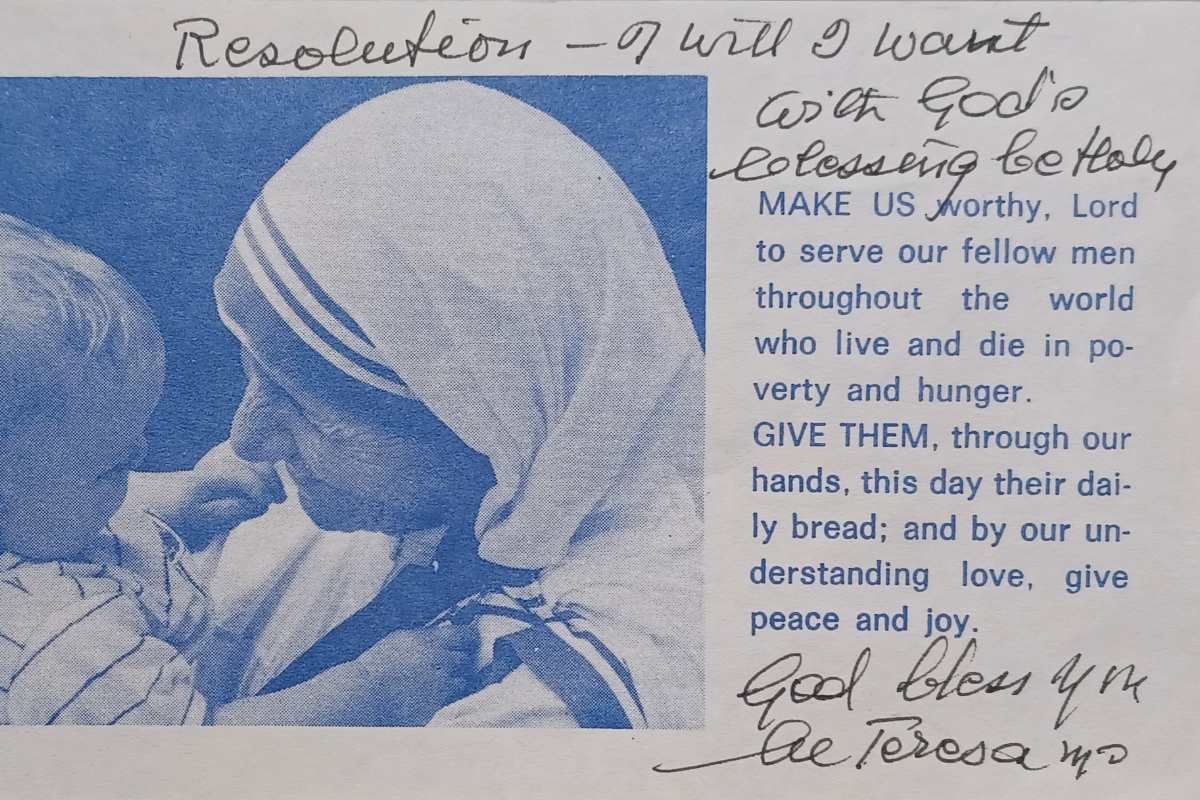 Resolution – I will I want
with God's
blessing be Holy
MAKE US worthy, Lord
to serve our fellow men
throughout the world
who live and die in po-
verty and hunger.
GIVE THEM, through our
hands, this day their dai-
ly bread; and by our un-
derstanding love, give
peace and joy.
God bless you
Teresa mc